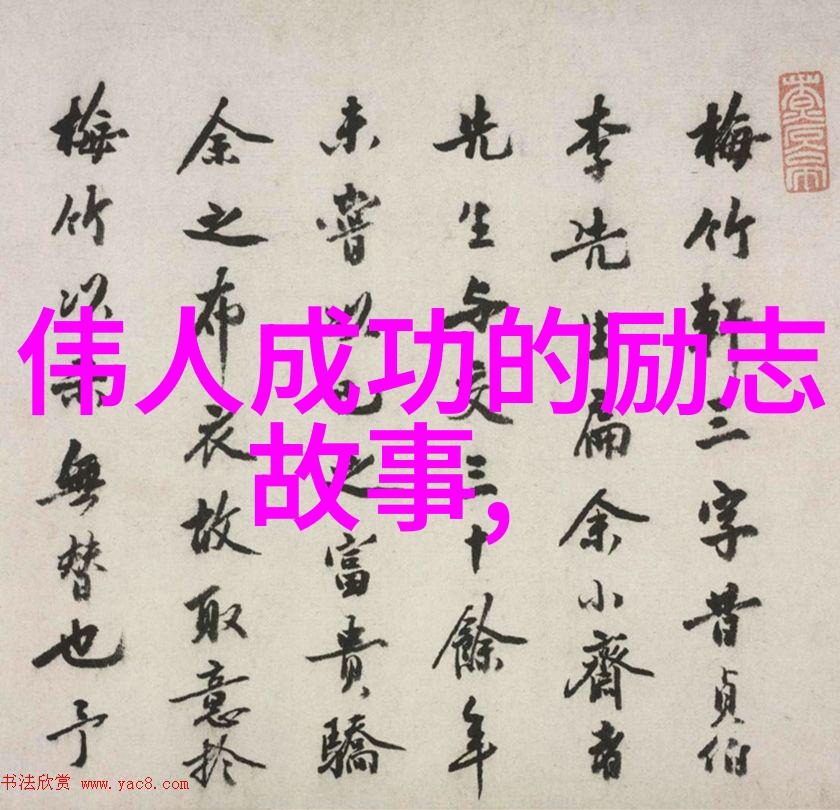 伟人成功的励志
故事,
梅竹軒三字昔貞伯
李先生扁余小齋者
先生与交三十餘年
未嘗以己之富貴驕
余之布衣故取意於
梅竹無替也予
书法欣赏 www.yac8.com